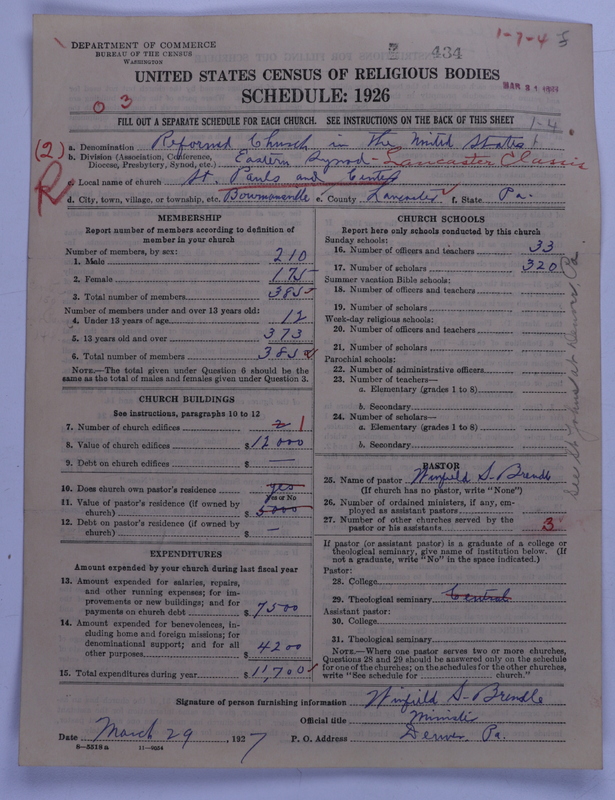 1-7-4
DEPARTMENT OF COMMERCE
BUREAU OF THE CENSUS
WASHINGTON
434
UNITED STATES CENSUS OF RELIGIOUS BODIES
SCHEDULE: 1926
03
FILL OUT A SEPARATE SCHEDULE FOR EACH CHURCH. SEE INSTRUCTIONS ON THE BACK OF THIS SHEET
1-4
(2)
R
a. Denomination Reformed Church in the United States
b. Division (Association, Conference, Diocese, Presbytery, Synod, etc.) Eastern Synod - Lancaster Classis
c. Local name of church St. Pauls and Center
d. City, town, village, or township, etc. Bowmansville e. County Lancaster f. State Pa.
MEMBERSHIP
Report number of members according to definition of
member in your church
Number of members, by sex:
1. Male 210
2. Female 175
3. Total number of members 385
Number of members under and over 13 years old:
4. Under 13 years of age 12
5. 13 years old and over 373
6. Total number of members 385
NOTE.—The total given under Question 6 should be the
same as the total of males and females given under Question 3.
CHURCH BUILDINGS
See instructions, paragraphs 10 to 12
7. Number of church edifices 2 1
8. Value of church edifices $12000
9. Debt on church edifices $ —
10. Does church own pastor's residence yes
Yes or No
11. Value of pastor's residence (if owned by
church) $5000
12. Debt on pastor's residence (if owned by
church) $ —
EXPENDITURES
Amount expended by your church during last fiscal year
13. Amount expended for salaries, repairs,
and other running expenses; for im-
provements or new buildings; and for
payments on church debt $7500
14. Amount expended for benevolences, in-
cluding home and foreign missions; for
denominational support; and for all
other purposes $4200
15. Total expenditures during year $11,700
CHURCH SCHOOLS
Report here only schools conducted by this church
Sunday schools:
16. Number of officers and teachers 33
17. Number of scholars 320
Summer vacation Bible schools:
18. Number of officers and teachers
19. Number of scholars
Week-day religious schools:
20. Number of officers and teachers
21. Number of scholars
Parochial schools:
22. Number of administrative officers
23. Number of teachers—
a. Elementary (grades 1 to 8)
b. Secondary
24. Number of scholars—
a. Elementary (grades 1 to 8)
b. Secondary
PASTOR
25. Name of pastor Winfield S. Brendle
(If church has no pastor, write "None")
26. Number of ordained ministers, if any, em-
ployed as assistant pastors
27. Number of other churches served by the
pastor or his assistants 3
If pastor (or assistant pastor) is a graduate of a college or
theological seminary, give name of institution below. (If
not a graduate, write "No" in the space indicated.)
Pastor:
28. College
29. Theological seminary Central
Assistant pastor:
30. College
31. Theological seminary
NOTE.—Where one pastor serves two or more churches,
Questions 28 and 29 should be answered only on the schedule
for one of the churches; on the schedules for the other churches,
write "See schedule for church."
See St. Johns at Denver, Pa.
Signature of person furnishing information Winfield S. Brendle
Official title Minister
Date March 29, 1927 P. O. Address Denver, Pa.
8-5518a 11-9054